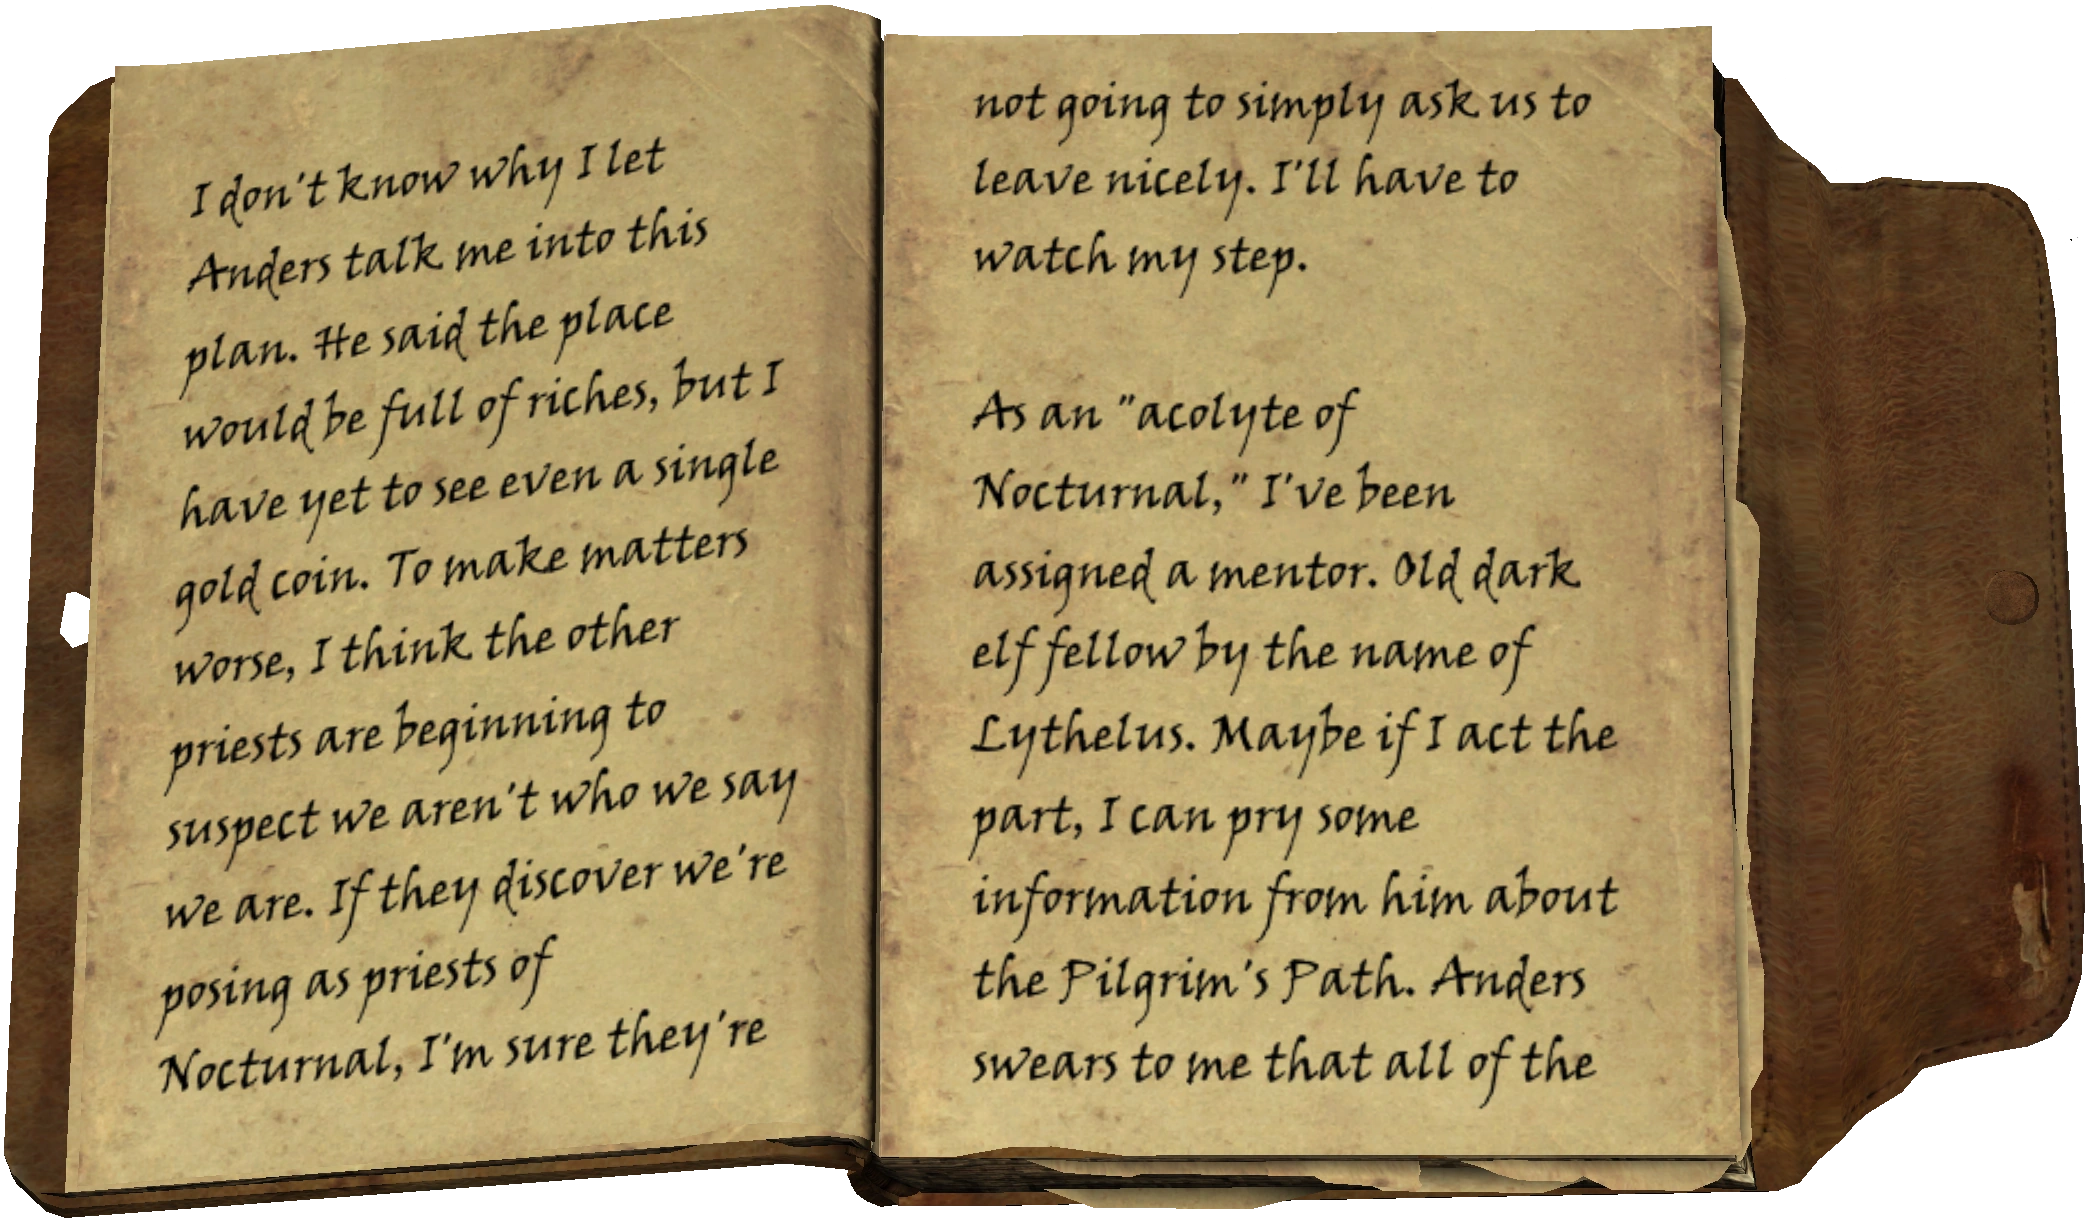 I don't know why I let
Anders talk me into this
plan. He said the place
would be full of riches, but I
have yet to see even a single
gold coin. To make matters
worse, I think the other
priests are beginning to
suspect we aren't who we say
we are. If they discover we're
posing as priests of
Nocturnal, I'm sure they're
not going to simply ask us to
leave nicely. I'll have to
watch my step.
As an "acolyte of
Nocturnal," I've been
assigned a mentor. Old dark
elf fellow by the name of
Lythelus. Maybe if I act the
part, I can pry some
information from him about
the Pilgrim's Path. Anders
swears to me that all of the